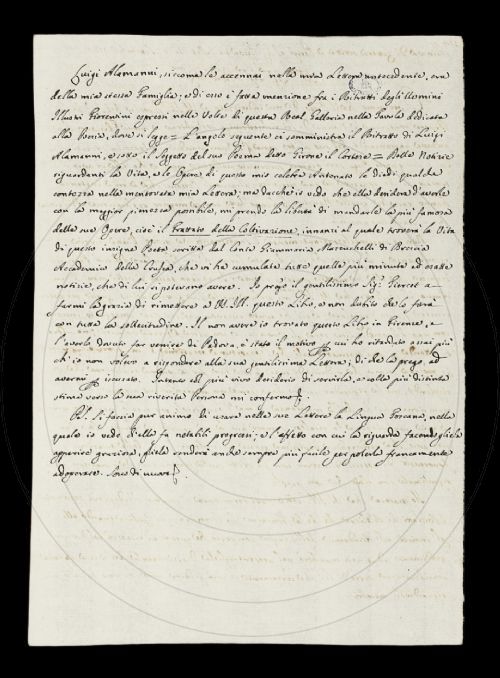 Luigi Alamanni, siccome le accennai nella mia Lettera antecedente, era
della mia stessa Famiglia; e di esso è fatta menzione fra i Ritratti degli Uomini
Illustri Fiorentini espressi nelle Volte di questa Real Galleria nella Tavola dedicata
alla Poesia, dove si legge = L'angolo seguente ci somministra il Ritratto di Luigi
Alamanni, e sotto il Soggetto del suo Poema detto Girone il Cortese = Delle Notizie
riguardanti la Vita, e le Opere di questo mio celebre Antenato le diedi qualche
contezza nella mentovata mia Lettera; ma dacchè io vedo che ella desidera d'averle
con la maggior pienezza possibile, mi prendo la libertà di mandarle la più famosa
delle sue Opere, cioè il Trattato della Coltivazione, innanzi al quale troverà la Vita
di questo insigne Poeta scritta dal Conte Giammaria Mazzuchelli di Brescia
Accademico della Crusca, che vi ha cumulate tutte quelle più minute ed esatte
notizie, che di lui si potevano avere. Io prego il gentilissimo Sig.
farmi la grazia di rimettere a VS. Ill. questo Libro, e non dubito che lo farà
con tutta la sollecitudine. Il non avere io trovato questo Libro in Firenze, e
l'averlo dovuto far venire di Padova, è stato il motivo, per cui ho ritardato assai più
ch'io non volevo a rispondere alla sua gentilissima Lettera; di che la prego ad
avermi per iscusato. Intanto col più vivo desiderio di servirla, e colla più distinta
stima verso la sua riverita Persona mi confermo
P.S. Si faccia pur animo di usare nelle sue Lettere la Lingua Toscana, nella
quale io vedo ch'ella fa notabili progressi; e l'affetto con cui la riguarda facendogliela
apparire graziosa, gliela renderà anche sempre più facile per poterla francamente
adoperare. Sono di nuovo